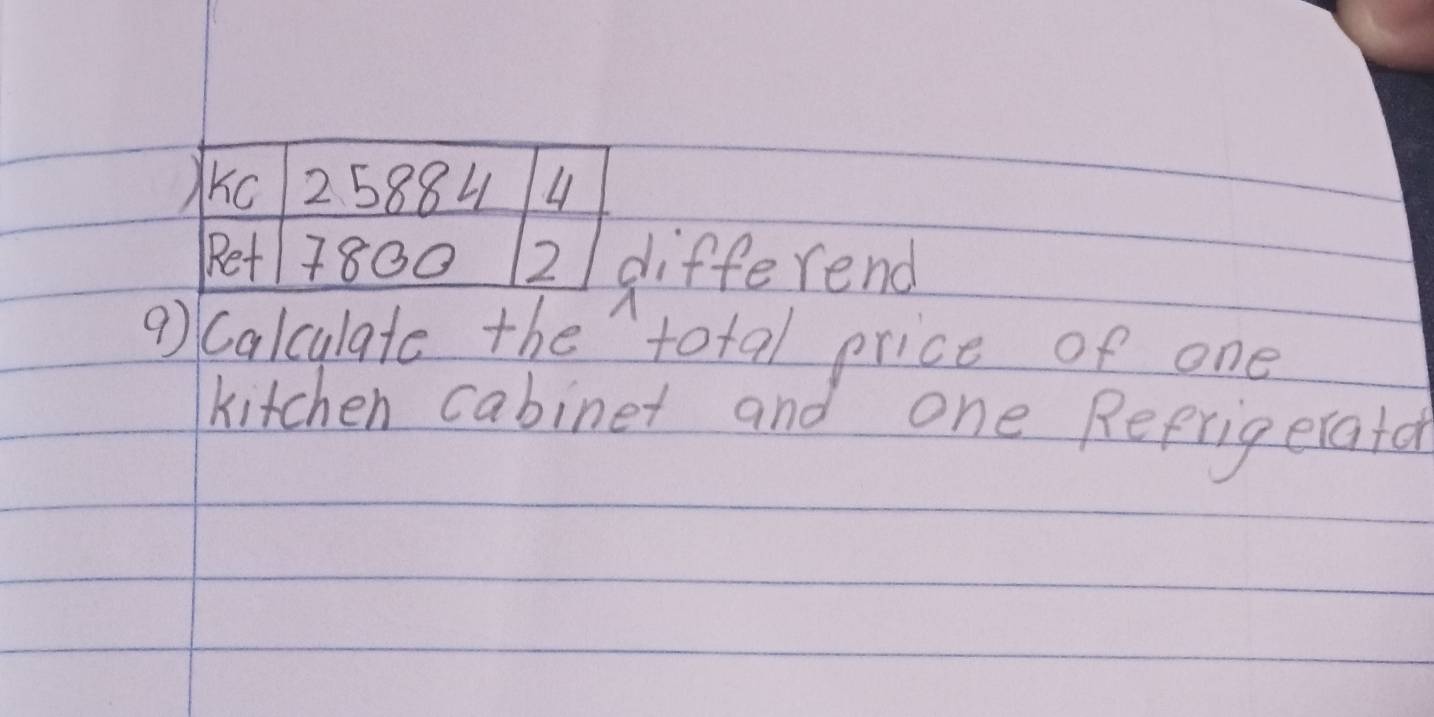 ) KC 25884 4
Ref 7800 2 differend
a) Calculate the ^ total price of one
kitchen cabinet and one Refrigerator